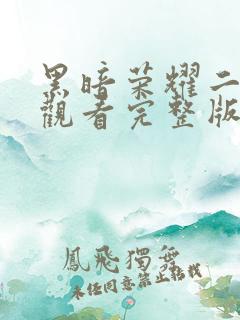 黑暗荣耀二
觀看完整版
鳳飛獨舞
未任同意禁止轉載